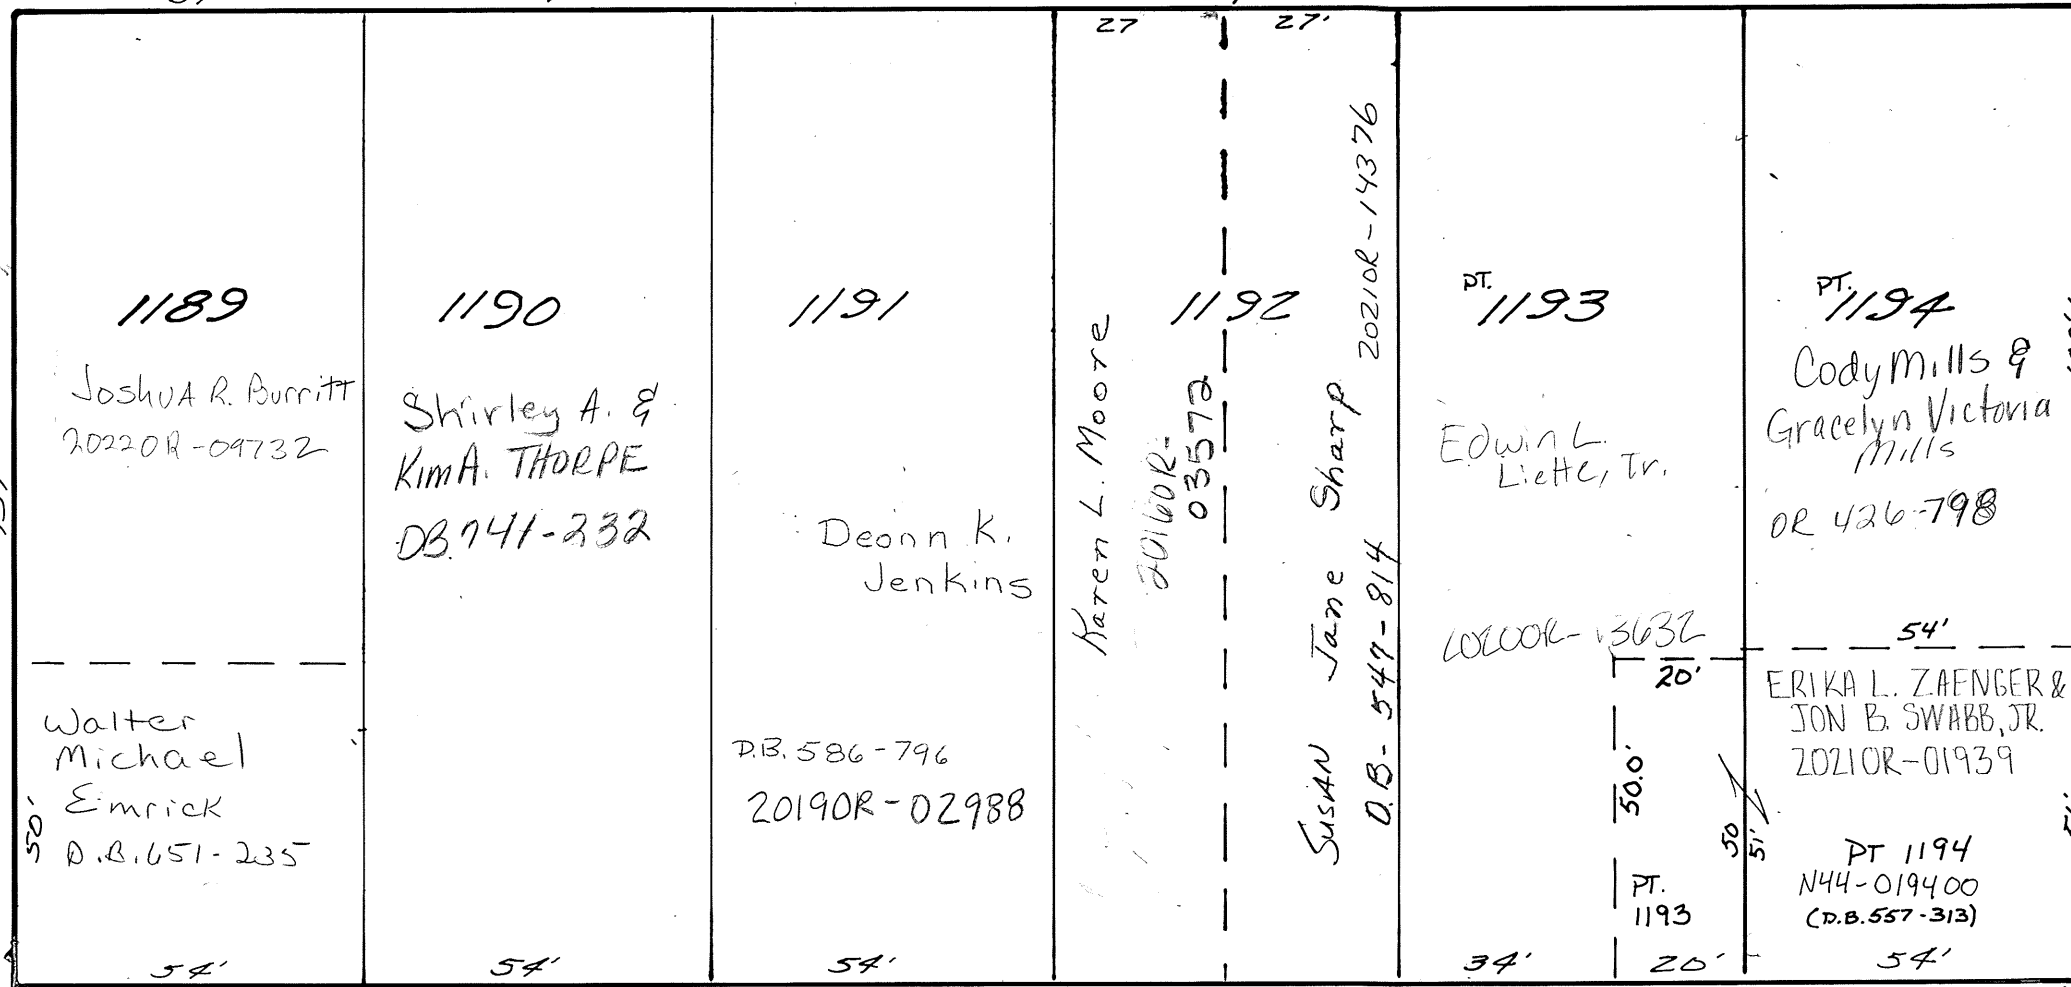 27
27'
1189
Joshua R. Burritt
2022OR-09732
Walter
Michael
Emrick
D.B. 651-235
50'
54'
1190
Shirley A. &
Kim A. THORPE
DB. 741-232
54'
1191
Deonn K.
Jenkins
D.B. 586-796
2019OR-02988
54'
1192
Karen L. Moore
2016OR-
03572
Susan Jane Sharp
2021OR-14376
D.B.- 547-814
PT.
1193
Edwin L.
Liette, Tr.
2020OR-13632
20'
50.0'
PT.
1193
34'
20'
PT.
1194
Cody Mills &
Gracelyn Victoria
Mills
OR 426-798
54'
ERIKA L. ZAENGER &
JON B. SWABB, JR.
2021OR-01939
50
51'
PT 1194
N44-019400
(D.B. 557-313)
54'